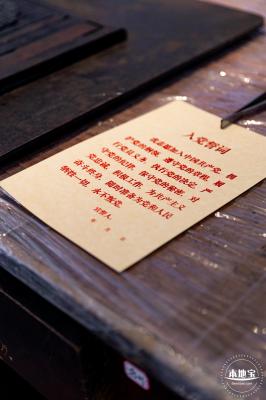 入党誓词
我志愿加入中国共产党，拥
护党的纲领，遵守党的章程，履
行党员义务，执行党的决定，严
守党的纪律，保守党的秘密，对
党忠诚，积极工作，为共产主义
奋斗终身，随时准备为党和人民
牺牲一切，永不叛党。
宣誓人：
年 月 日
本地宝